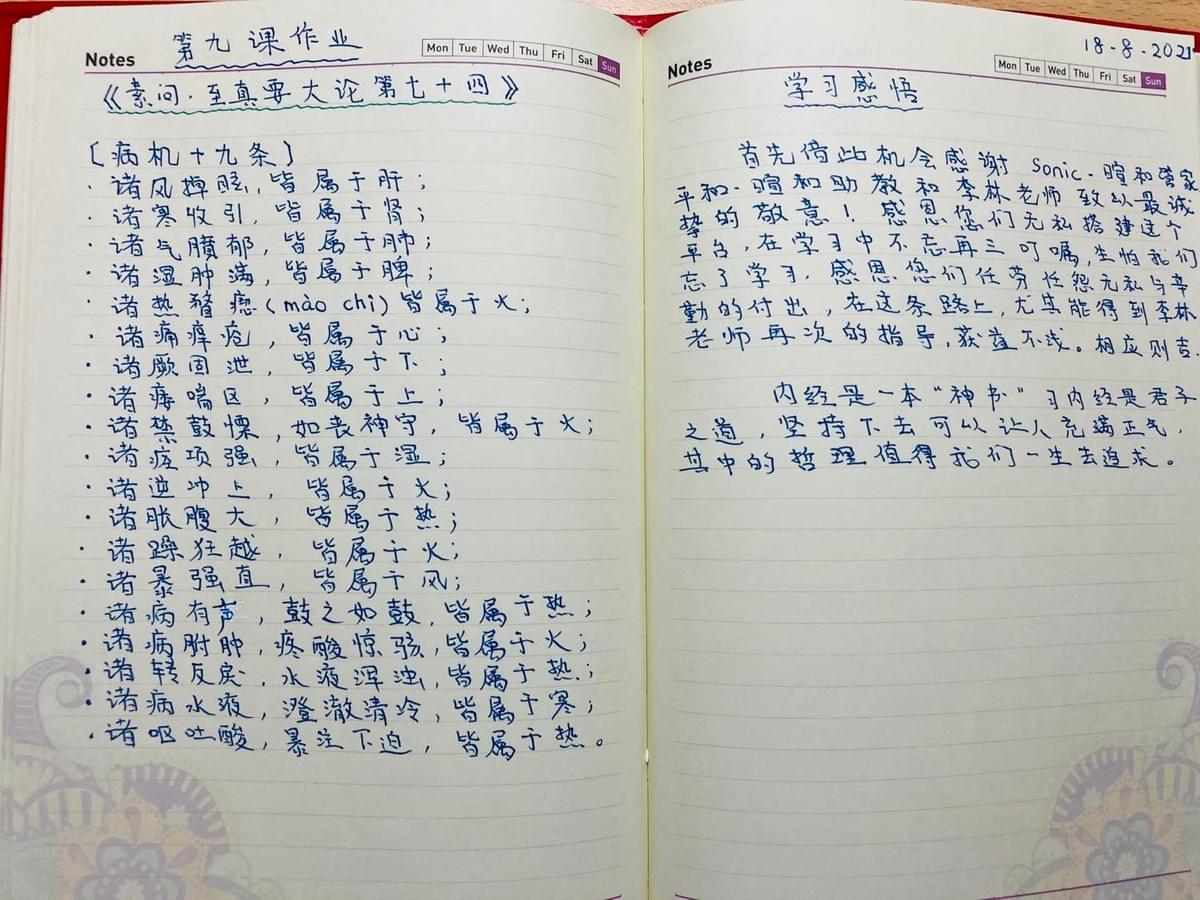 Notes 第九课作业 Mon Tue Wed Thu Fri Sat Sun
《素问·至真要大论第七十四》
〔病机十九条〕
· 诸风掉眩，皆属于肝；
· 诸寒收引，皆属于肾；
· 诸气膹郁，皆属于肺；
· 诸湿肿满，皆属于脾；
· 诸热瞀瘛(mào chì)皆属于火；
· 诸痛痒疮，皆属于心；
· 诸厥固泄，皆属于下；
· 诸痿喘区，皆属于上；
· 诸禁鼓慄，如丧神守，皆属于火；
· 诸痉项强，皆属于湿；
· 诸逆冲上，皆属于火；
· 诸胀腹大，皆属于热；
· 诸躁狂越，皆属于火；
· 诸暴强直，皆属于风；
· 诸病有声，鼓之如鼓，皆属于热；
· 诸病胕肿，疼酸惊骇，皆属于火；
· 诸转反戾，水液浑浊，皆属于热；
· 诸病水液，澄澈清冷，皆属于寒；
· 诸呕吐酸，暴注下迫，皆属于热。
18-8-2021
Notes Mon Tue Wed Thu Fri Sat Sun
学习感悟
首先借此机会感谢 Sonic·暄和管家
平和·暄和助教和李林老师致以最诚
挚的敬意！感恩您们无私搭建这个
平台，在学习中不忘再三叮嘱，生怕我们
忘了学习，感恩您们任劳任怨无私与辛
勤的付出，在这条路上，尤其能得到李林
老师再次的指导，获益不浅。相应则吉.
内经是一本“神书”习内经是君子
之道，坚持下去可以让人充满正气，
其中的哲理值得我们一生去追求。